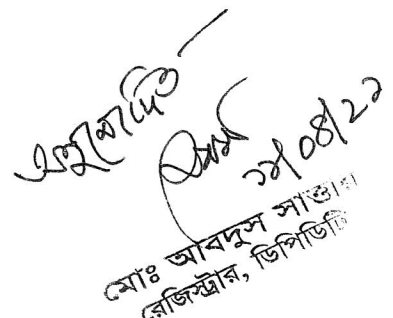 অনুমোদিত
মোঃ আবদুস সাত্তার
রেজিস্ট্রার, ডিপিডিটি